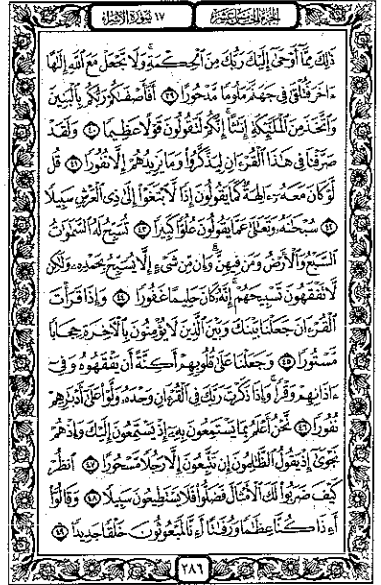 ١٧ سُورَةُ الإِسْرَاءِ
الجُزْءُ الخَامِسَ عَشَرَ
ذَٰلِكَ مِمَّآ أَوْحَىٰٓ إِلَيْكَ رَبُّكَ مِنَ ٱلْحِكْمَةِ ۗ وَلَا تَجْعَلْ مَعَ ٱللَّهِ إِلَٰهًا
ءَاخَرَ فَتُلْقَىٰ فِى جَهَنَّمَ مَلُومًا مَّدْحُورًا ﴿٣٩﴾ أَفَأَصْفَىٰكُمْ رَبُّكُم بِٱلْبَنِينَ
وَٱتَّخَذَ مِنَ ٱلْمَلَٰٓئِكَةِ إِنَٰثًا ۚ إِنَّكُمْ لَتَقُولُونَ قَوْلًا عَظِيمًا ﴿٤٠﴾ وَلَقَدْ
صَرَّفْنَا فِى هَٰذَا ٱلْقُرْءَانِ لِيَذَّكَّرُوا۟ وَمَا يَزِيدُهُمْ إِلَّا نُفُورًا ﴿٤١﴾ قُل
لَّوْ كَانَ مَعَهُۥٓ ءَالِهَةٌ كَمَا يَقُولُونَ إِذًا لَّٱبْتَغَوْا۟ إِلَىٰ ذِى ٱلْعَرْشِ سَبِيلًا
﴿٤٢﴾ سُبْحَٰنَهُۥ وَتَعَٰلَىٰ عَمَّا يَقُولُونَ عُلُوًّا كَبِيرًا ﴿٤٣﴾ تُسَبِّحُ لَهُ ٱلسَّمَٰوَٰتُ
ٱلسَّبْعُ وَٱلْأَرْضُ وَمَن فِيهِنَّ ۚ وَإِن مِّن شَىْءٍ إِلَّا يُسَبِّحُ بِحَمْدِهِۦ وَلَٰكِن
لَّا تَفْقَهُونَ تَسْبِيحَهُمْ ۗ إِنَّهُۥ كَانَ حَلِيمًا غَفُورًا ﴿٤٤﴾ وَإِذَا قَرَأْتَ
ٱلْقُرْءَانَ جَعَلْنَا بَيْنَكَ وَبَيْنَ ٱلَّذِينَ لَا يُؤْمِنُونَ بِٱلْءَاخِرَةِ حِجَابًا
مَّسْتُورًا ﴿٤٥﴾ وَجَعَلْنَا عَلَىٰ قُلُوبِهِمْ أَكِنَّةً أَن يَفْقَهُوهُ وَفِىٓ
ءَاذَانِهِمْ وَقْرًا ۚ وَإِذَا ذَكَرْتَ رَبَّكَ فِى ٱلْقُرْءَانِ وَحْدَهُۥ وَلَّوْا۟ عَلَىٰٓ أَدْبَٰرِهِمْ
نُفُورًا ﴿٤٦﴾ نَّحْنُ أَعْلَمُ بِمَا يَسْتَمِعُونَ بِهِۦٓ إِذْ يَسْتَمِعُونَ إِلَيْكَ وَإِذْ هُمْ
نَجْوَىٰٓ إِذْ يَقُولُ ٱلظَّٰلِمُونَ إِن تَتَّبِعُونَ إِلَّا رَجُلًا مَّسْحُورًا ﴿٤٧﴾ ٱنظُرْ
كَيْفَ ضَرَبُوا۟ لَكَ ٱلْأَمْثَالَ فَضَلُّوا۟ فَلَا يَسْتَطِيعُونَ سَبِيلًا ﴿٤٨﴾ وَقَالُوٓا۟
أَءِذَا كُنَّا عِظَٰمًا وَرُفَٰتًا أَءِنَّا لَمَبْعُوثُونَ خَلْقًا جَدِيدًا ﴿٤٩﴾
٢٨٦